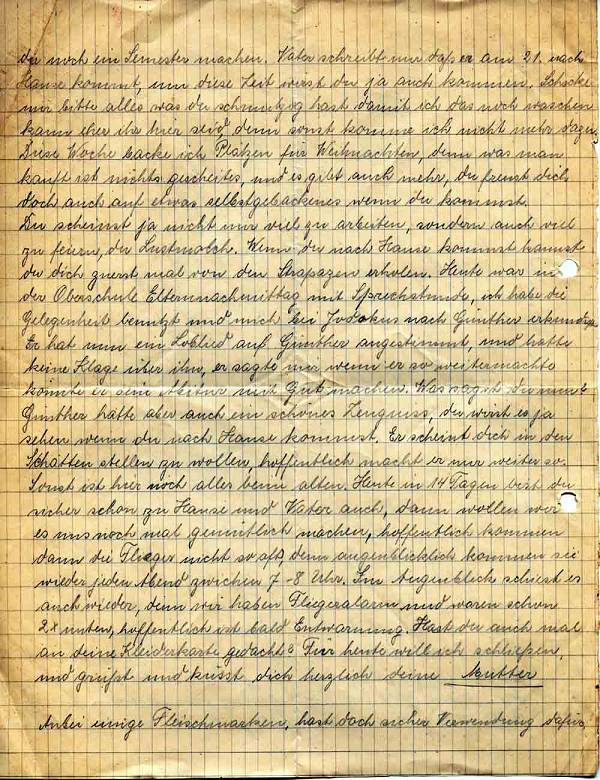 du noch ein Semester machen. Vater schreibt mir daß er am 21. nach
Hause kommt, um diese Zeit wirst du ja auch kommen. Schicke
mir bitte alles was du schmutzig hast damit ich das noch waschen
kann eher ihr hier seid denn sonst komme ich nicht mehr dazu.
Diese Woche backe ich Plätzen für Weihnachten, denn was man
kauft ist nichts gescheites, und es gibt auch mehr, du freust dich
doch auch auf etwas selbstgebackenes wenn du kommst.
Du scheinst ja nicht nur viel zu arbeiten, sondern auch viel
zu feiern, du Lustmolch. Wenn du nach Hause kommst kannst
du dich zuerst mal von den Strapazen erholen. Heute war in
der Oberschule Elternnachmittag mit Sprechstunde, ich habe die
Gelegenheit benutzt und mich bei Jodokus nach Günther erkundigt.
Er hat nun ein Loblied auf Günther angestimmt, und hatte
keine Klage über ihn, er sagte mir wenn er so weitermachte
könnte er sein Abitur mit Gut machen. Was sagst du nun?
Günther hatte aber auch ein schönes Zeugniss, du wirst es ja
sehen wenn du nach Hause kommst. Er scheint dich in den
Schatten stellen zu wollen, hoffentlich macht er nur weiter so.
Sonst ist hier noch alles beim alten. Heute in 14 Tagen bist du
sicher schon zu Hause und Vater auch, dann wollen wir
es uns noch mal gemütlich machen, hoffentlich kommen
dann die Flieger nicht so oft, denn augenblicklich kommen sie
wieder jeden Abend zwichen 7-8 Uhr. Im Augenblick schiest es
auch wieder, denn wir haben Fliegeralarm und waren schon
2x unten, hoffentlich ist bald Entwarnung. Hast du auch mal
an deine Kleiderkarte gedacht? Für heute will ich schließen,
und grüßt und küsst dich herzlich deine Mutter
Anbei einige Fleischmarken, hast doch sicher Verwendung dafür.